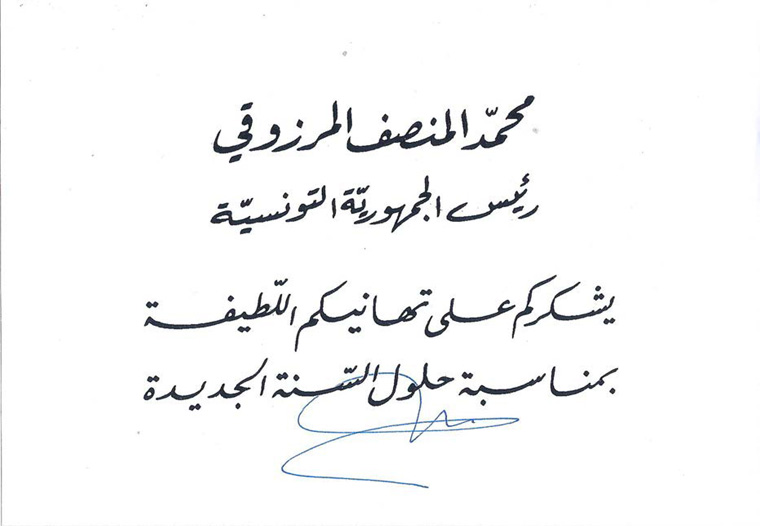 محمّد المنصف المرزوقي
رئيس الجمهوريّة التونسيّة
يشكركم على تهانيكم اللّطيفة
بمناسبة حلول السّنة الجديدة